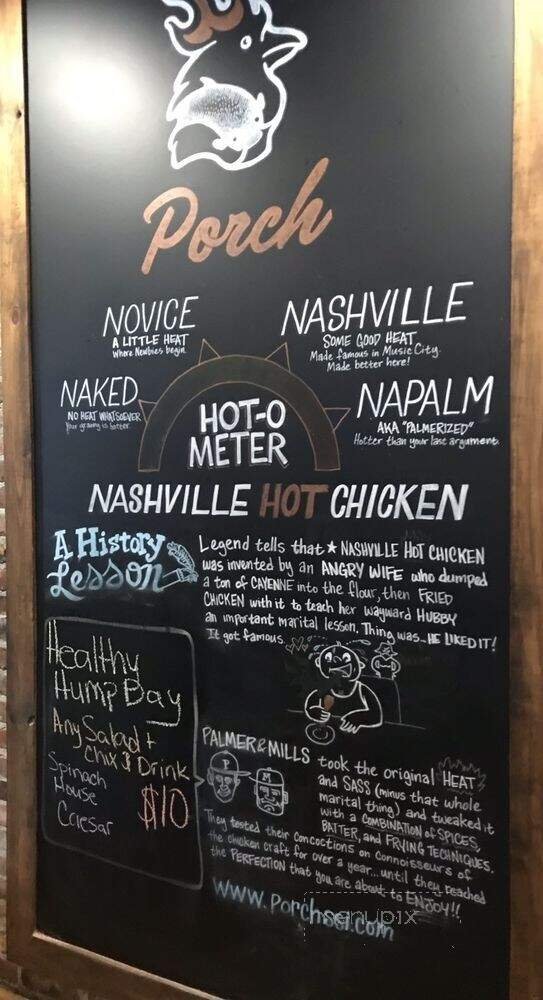 Porch
NOVICE
A LITTLE HEAT
Where Newbies begin.
NASHVILLE
SOME GOOD HEAT
Made famous in Music City.
Made better here!
NAKED
NO HEAT WHATSOEVER
Your granny is hotter.
NAPALM
AKA "PALMERIZED"
Hotter than your last argument.
HOT-O
METER
NASHVILLE HOT CHICKEN
A History
Lesson
Legend tells that ★ NASHVILLE HOT CHICKEN
was invented by an ANGRY WIFE who dumped
a ton of CAYENNE into the flour, then FRIED
CHICKEN with it to teach her wayward HUBBY
an important marital lesson. Thing was.. HE LIKED IT!
It got famous.
Healthy
Hump Day
Any Salad +
Chix & Drink
Spinach
House
Caesar
$10
PALMER & MILLS took the original HEAT
and SASS (minus that whole
marital thing) and tweaked it
with a COMBINATION of SPICES,
BATTER, and FRYING TECHNIQUES.
They tested their concoctions on connoisseurs of
the chicken craft for over a year... until they reached
the PERFECTION that you are about to ENJOY!!
P
M
www.porchsei.com
menupix